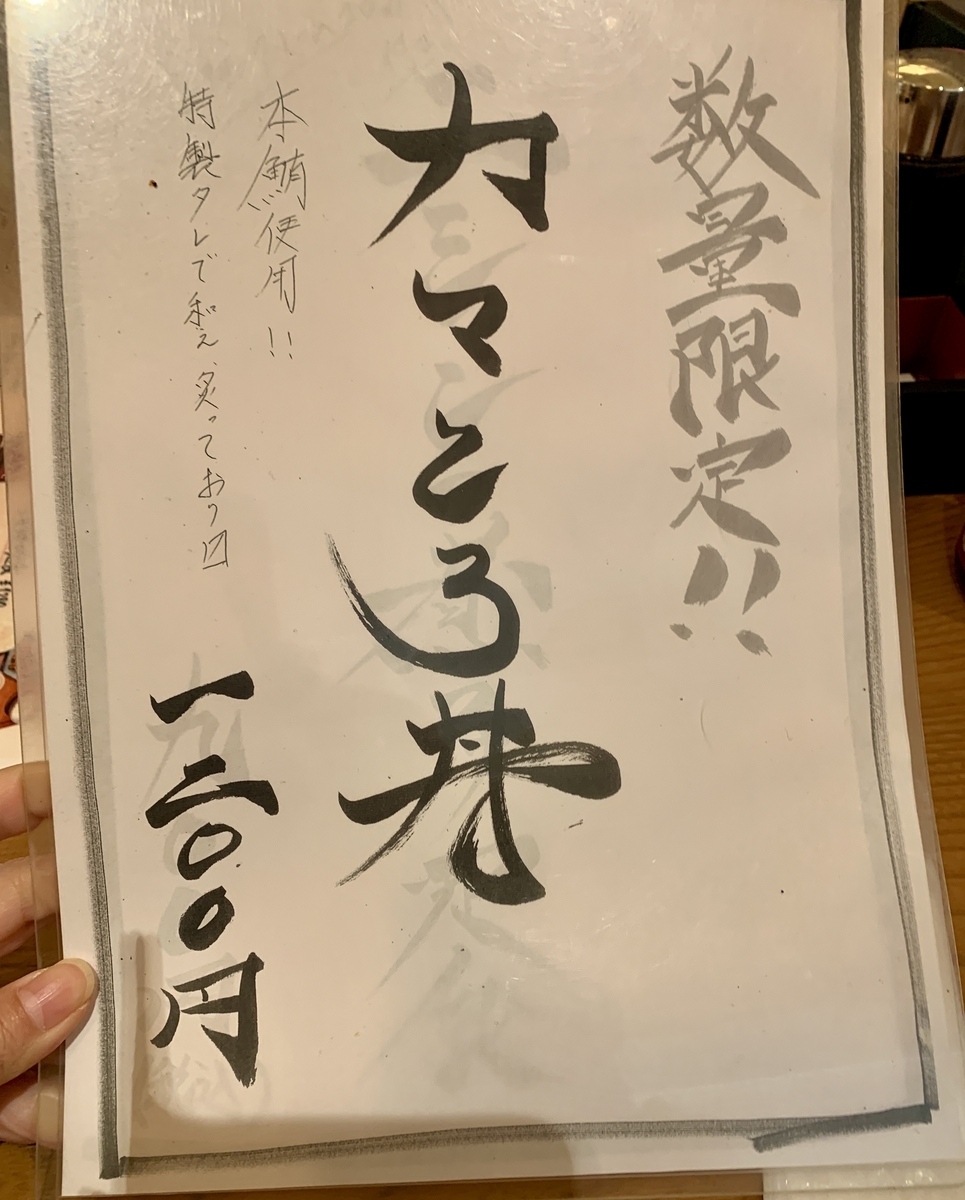 数量限定!!
カマとろ丼
本鮪使用!!
特製タレで和え、炙っており〼
一二〇〇円